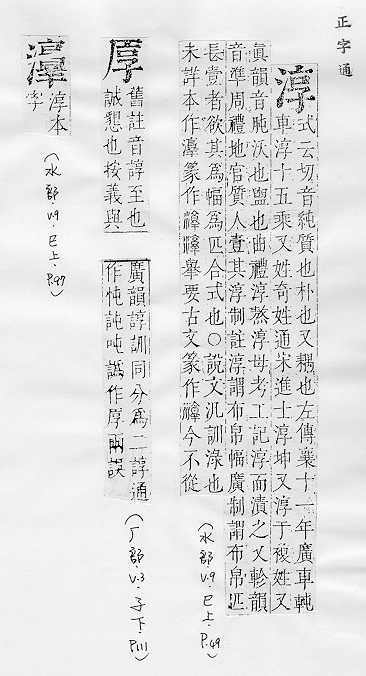 正字通
淳
式云切音純質也朴也又耦也左傳襄十一年廣車軘
車淳十五乘又姓奇姓通宋進士淳坤又淳于複姓又
眞韻音肫沃也盥也曲禮淳熬淳母考工記淳而漬之又軫韻
音準周禮地官質人壹其淳制註淳謂布帛幅廣制謂布帛匹
長壹者欲其爲幅爲匹合式也○說文汎訓淥也
未詳本作 篆作 舉要古文篆作 今不從
(水部.V.9.巳上.P.49)
舊註音諄至也
誠懇也按義與
廣韻諄訓同分爲二諄通
作忳訰吨 作厚兩誤
(厂部.V.3.子下.P.111)
淳本
字
(水部.V.9.巳上.P.97)